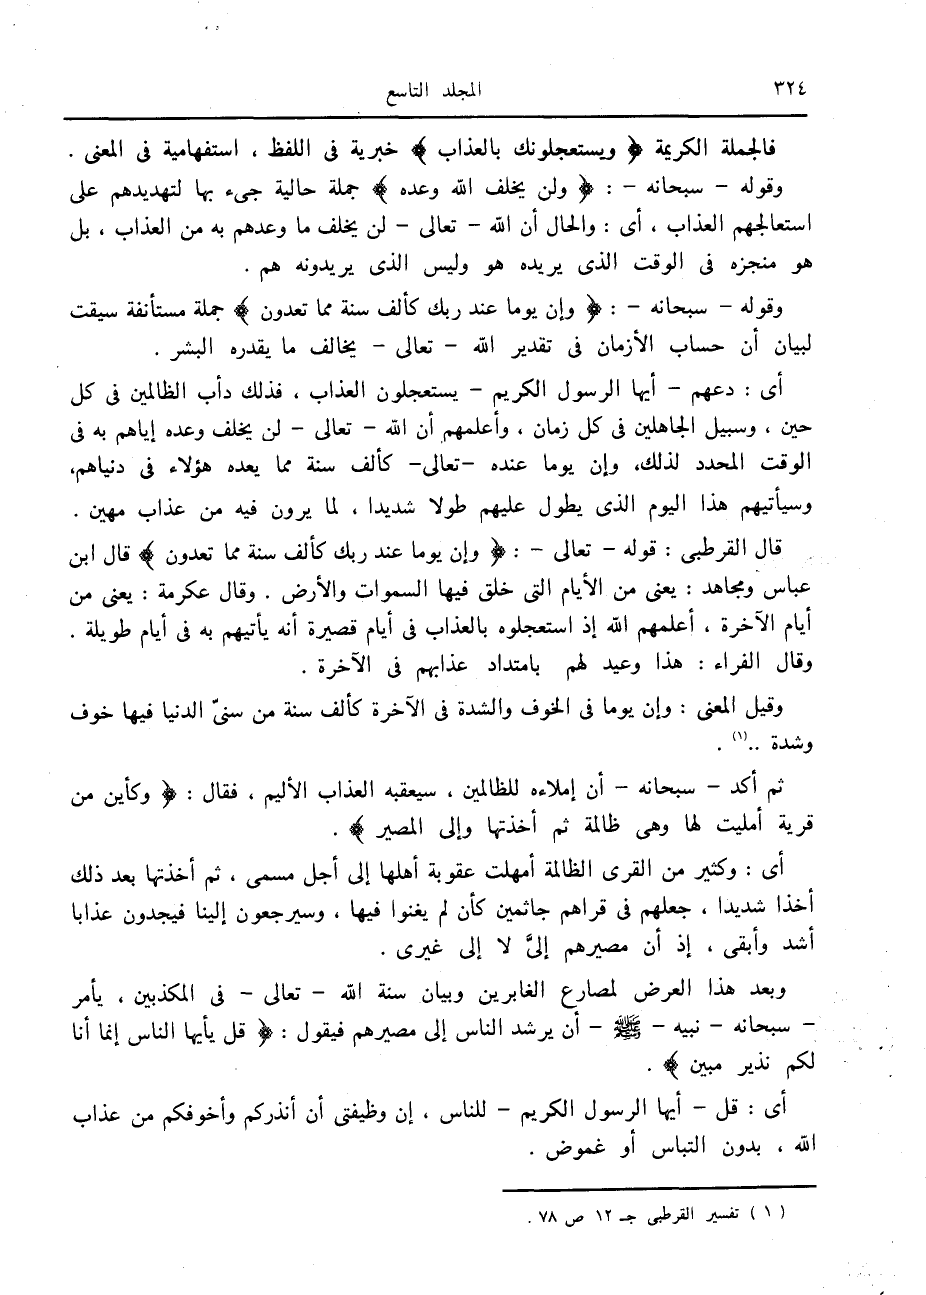 ٣٢٤ المجلد التاسع
فالجملة الكريمة ﴿ ويستعجلونك بالعذاب ﴾ خبرية فى اللفظ ، استفهامية فى المعنى .
وقوله – سبحانه – : ﴿ ولن يخلف الله وعده ﴾ جملة حالية جىء بها لتهديدهم على
استعالجهم العذاب ، أى : والحال أن الله – تعالى – لن يخلف ما وعدهم به من العذاب ، بل
هو منجزه فى الوقت الذى يريده هو وليس الذى يريدونه هم .
وقوله – سبحانه – : ﴿ وإن يوما عند ربك كألف سنة مما تعدون ﴾ جملة مستأنفة سيقت
لبيان أن حساب الأزمان فى تقدير الله – تعالى – يخالف ما يقدره البشر .
أى : دعهم – أيها الرسول الكريم – يستعجلون العذاب ، فذلك دأب الظالمين فى كل
حين ، وسبيل الجاهلين فى كل زمان ، وأعلمهم أن الله – تعالى – لن يخلف وعده إياهم به فى
الوقت المحدد لذلك، وإن يوما عنده –تعالى– كألف سنة مما يعده هؤلاء فى دنياهم،
وسيأتيهم هذا اليوم الذى يطول عليهم طولا شديدا ، لما يرون فيه من عذاب مهين .
قال القرطبى : قوله – تعالى – : ﴿ وإن يوما عند ربك كألف سنة مما تعدون ﴾ قال ابن
عباس ومجاهد : يعنى من الأيام التى خلق فيها السموات والأرض . وقال عكرمة : يعنى من
أيام الآخرة ، أعلمهم الله إذ استعجلوه بالعذاب فى أيام قصيرة أنه يأتيهم به فى أيام طويلة .
وقال الفراء : هذا وعيد لهم بامتداد عذابهم فى الآخرة .
وقيل المعنى : وإن يوما فى الخوف والشدة فى الآخرة كألف سنة من سنىّ الدنيا فيها خوف
وشدة ..(١) .
ثم أكد – سبحانه – أن إملاءه للظالمين ، سيعقبه العذاب الأليم ، فقال : ﴿ وكأين من
قرية أمليت لها وهى ظالمة ثم أخذتها وإلى المصير ﴾ .
أى : وكثير من القرى الظالمة أمهلت عقوبة أهلها إلى أجل مسمى ، ثم أخذتها بعد ذلك
أخذا شديدا ، جعلهم فى قراهم جاثمين كأن لم يغنوا فيها ، وسيرجعون إلينا فيجدون عذابا
أشد وأبقى ، إذ أن مصيرهم إلىَّ لا إلى غيرى .
وبعد هذا العرض لمصارع الغابرين وبيان سنة الله – تعالى – فى المكذبين ، يأمر
– سبحانه – نبيه – ﷺ – أن يرشد الناس إلى مصيرهم فيقول : ﴿ قل يأيها الناس إنما أنا
لكم نذير مبين ﴾ .
أى : قل – أيها الرسول الكريم – للناس ، إن وظيفتى أن أنذركم وأخوفكم من عذاب
الله ، بدون التباس أو غموض .
( ١ ) تفسير القرطبى جـ ١٢ ص ٧٨ .